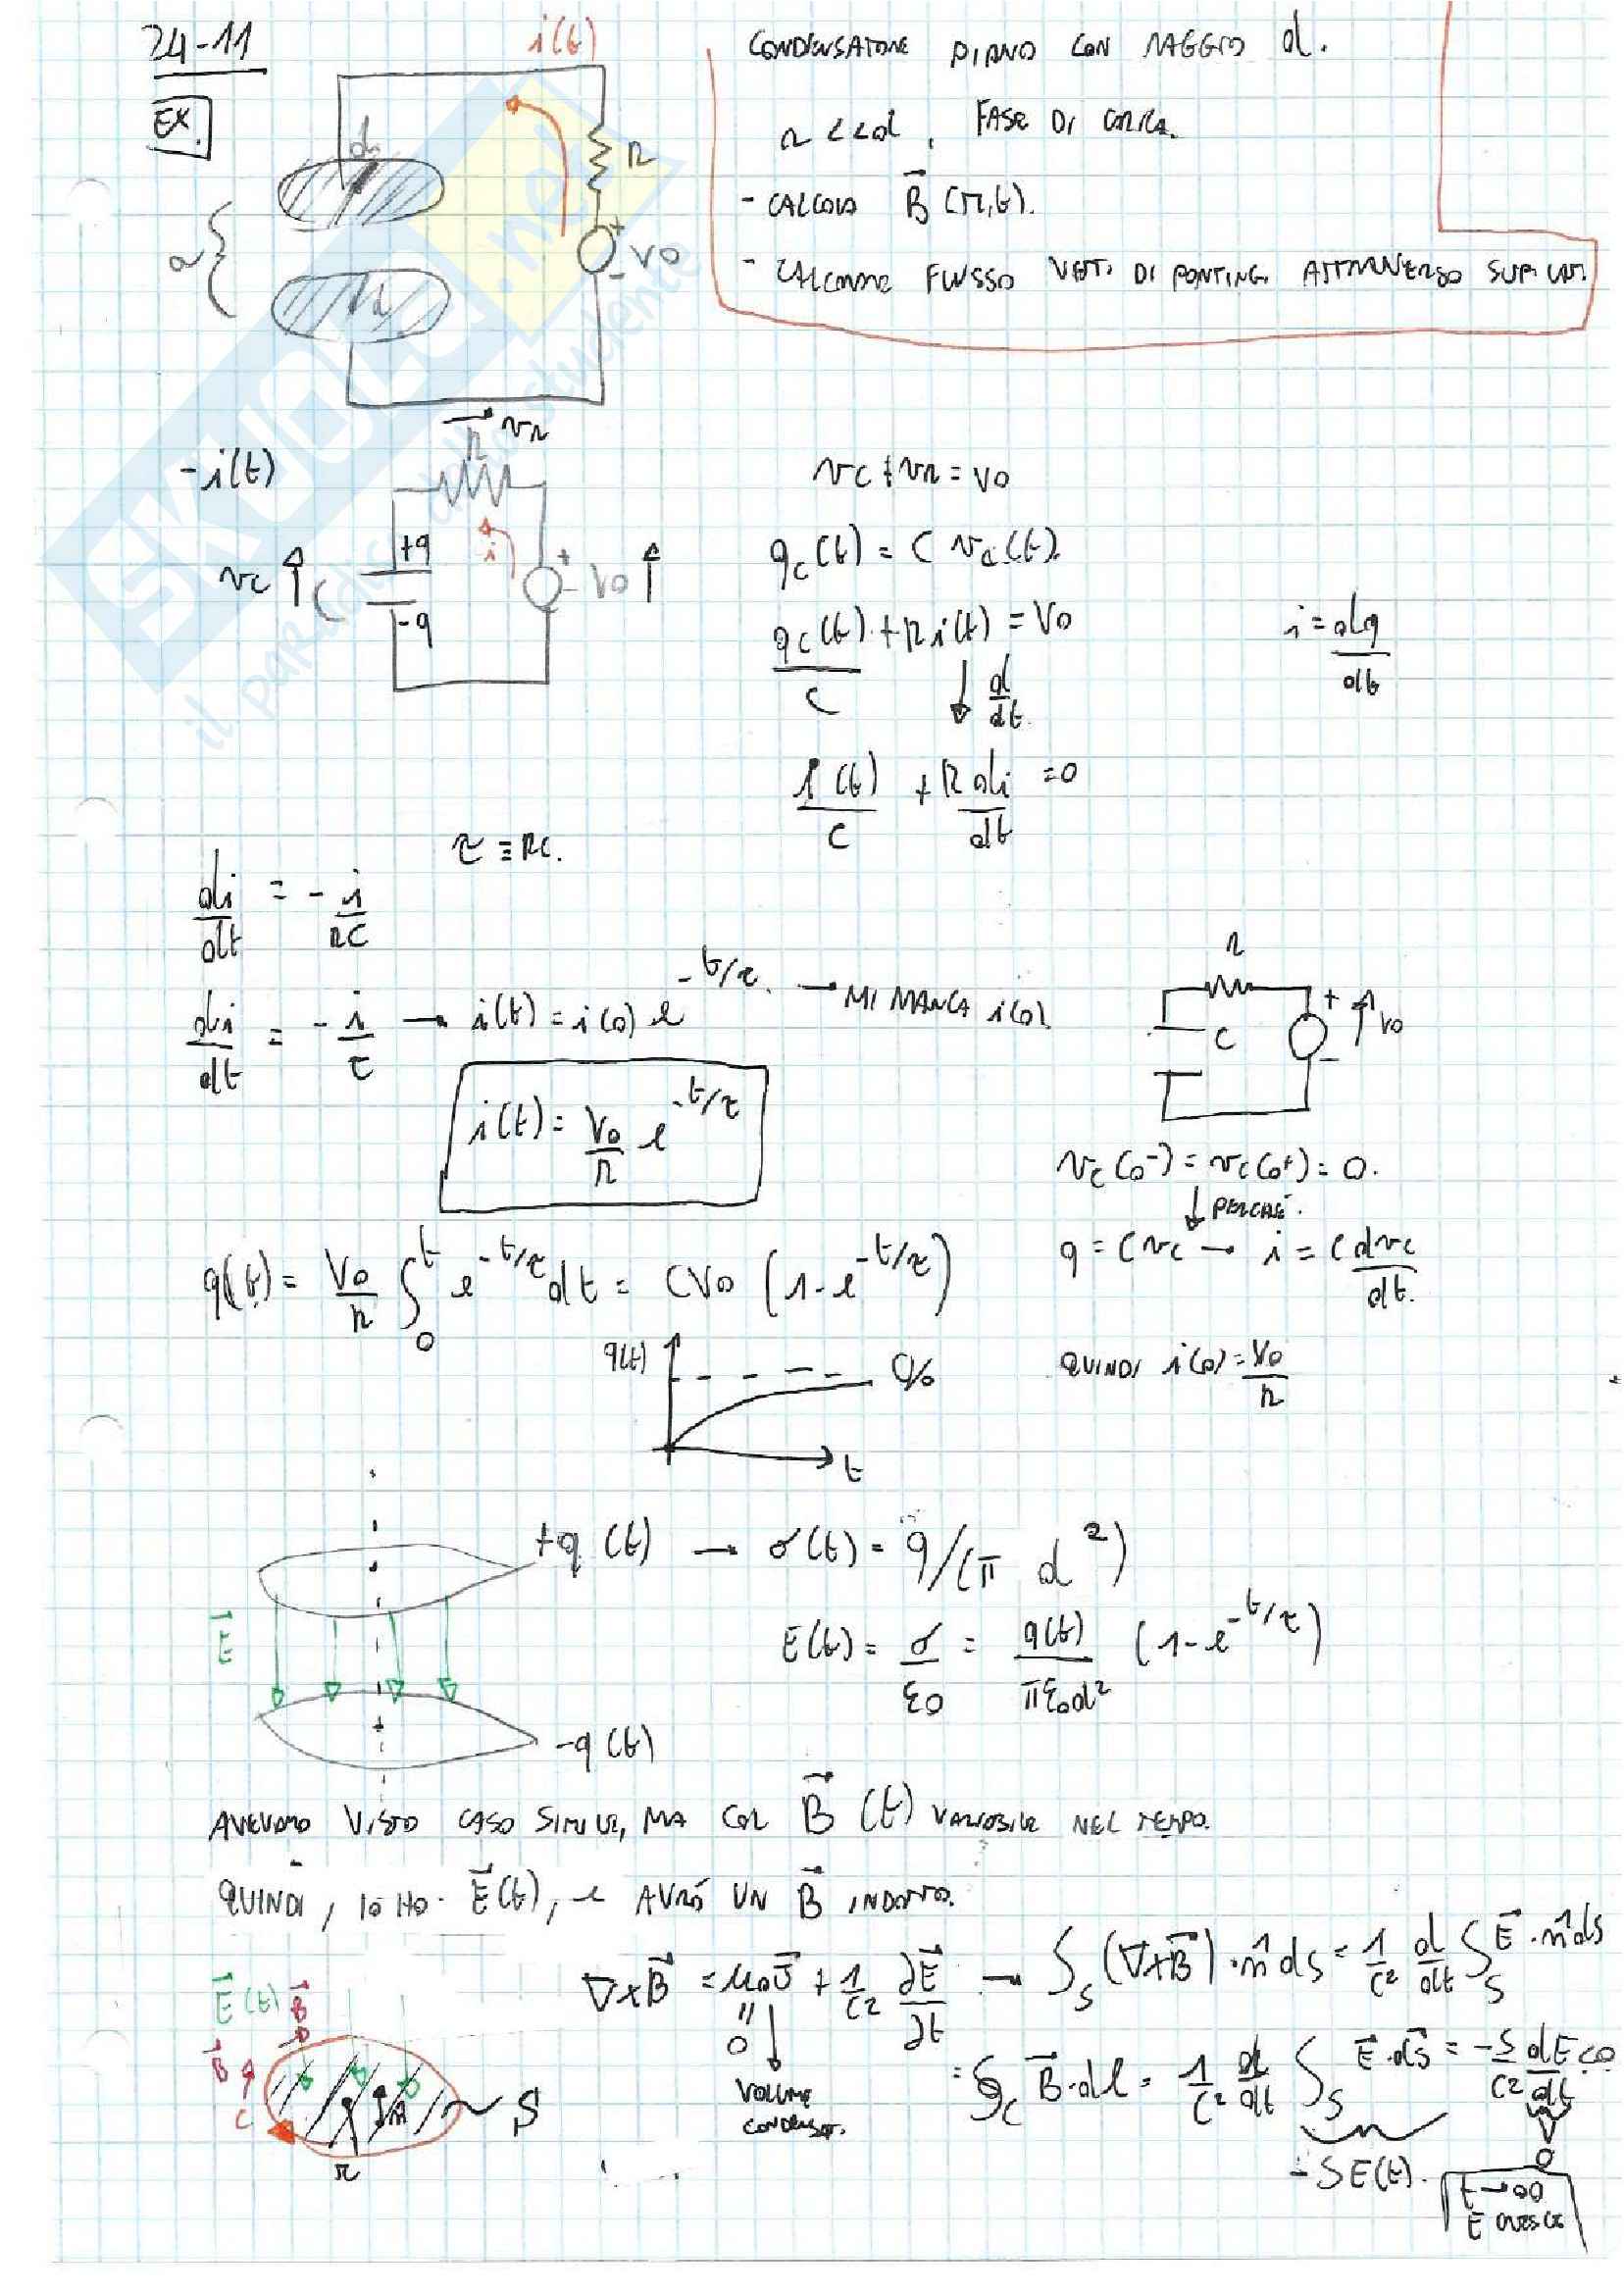 24-11
EX.
i(t)
d
a
R
+
-
V0
CONDENSATORE PIANO CON RAGGIO d.
r << d, FASE DI CARICA.
- CALCOLO B⃗ (r,t).
- CALCOLARE FLUSSO VETT. DI POYNTING ATTRAVERSO SUP. LAT.
-i(t)
R vR
vC C
+q
-q
i
+
-
V0
vC + vR = V0
qC(t) = C vC(t).
qC(t)/C + R i(t) = V0
i = dq/dt
↓ d/dt
i(t)/C + R di/dt = 0
τ ≡ RC.
di/dt = - i/RC
di/dt = - i/τ → i(t) = i(0) e^{-t/τ}. → MI MANCA i(0)
R
C
+
-
V0
i(t) = V0/R e^{-t/τ}
vC(0⁻) = vC(0⁺) = 0.
↓ PERCHÉ.
q = C vC → i = C dvC/dt.
q(t) = V0/R ∫₀ᵗ e^{-t/τ} dt = CV0 (1 - e^{-t/τ})
q(t)
t
QUINDI i(0) = V0/R
+q(t) → σ(t) = q/(π d²)
E⃗
E(t) = σ/ε0 = q(t)/πε0d² (1 - e^{-t/τ})
-q(t)
AVEVAMO VISTO CASO SIMILE, MA COL B⃗ (t) VARIABILE NEL TEMPO.
QUINDI, IO HO E⃗(t), e AVRÓ UN B⃗ INDOTTO.
∇×B⃗ = μ0J⃗ + 1/C² ∂E⃗/∂t → ∫_S (∇×B⃗)·n̂ dS = 1/C² d/dt ∫_S E⃗·n̂ dS
E⃗(t) B⃗
B⃗
C
n̂
S
r
0
VOLUME
CONDENSAT.
= ∮_C B⃗·dl = 1/C² d/dt ∫_S E⃗·dS⃗ = -S/C² dE/dt <0
-S E(t).
0
t→∞
E CRESCE
SKUOLA.net
il paradiso dello studente